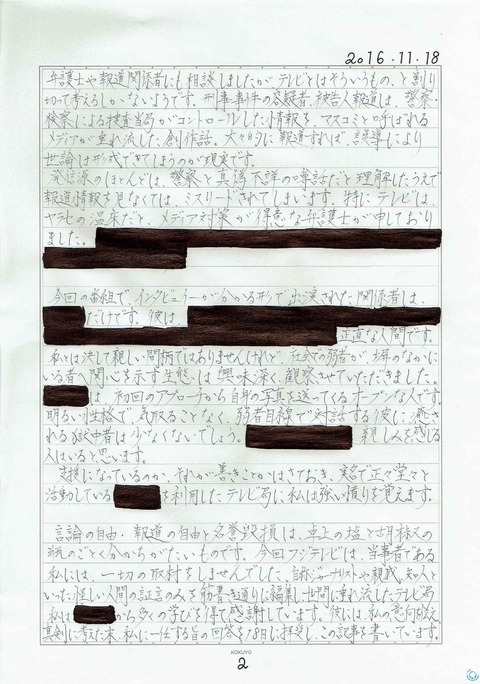 2016.11.18
弁護士や報道関係者にも相談しましたがテレビとはそういうもの、と割り
切って考えるしかないようです。刑事事件の容疑者、被告人報道は、警察・
検察による捜査当局がコントロールした情報を、マスコミと呼ばれる
メディアが垂れ流した創作話。大々的に報道すれば、誤導により
世論は形成できてしまうのが現実です。
発信源のほとんどは、警察と真偽不詳の毒話だと理解したうえで
報道情報を見なくては、ミスリードされてしまいます。特にテレビは、
ヤラセの温床だと、メディア対策が得意な弁護士が申しており
ました。
今回の番組で、インタビュイーが分かる形で出演された関係者は、
だけです。彼は、
正直な人間です。
私とは決して親しい間柄ではありませんけれど、社会での弱者が、塀のなかに
いる者へ関心を示す生態は興味深く、観察させていただきました。
は、初回のアプローチから自身の写真を送ってくるオープンな人です。
明るい性格で、気取ることなく、弱者目線で対話する彼に癒さ
れる獄中者は少なくないでしょう。親しみを感じる
人はいると思います。
支援になっているのか、それが善きことかはさておき、実名で正々堂々と
活動している を利用したテレビ局に私は強い憤りを覚えます。
言論の自由・報道の自由と名誉毀損は、卓上の塩と胡椒の
瓶のごとく分かちがたいものです。今回フジテレビは、当事者である
私には、一切の取材をしませんでした。自称ジャーナリストや親戚、知人と
いった怪しい人間の証言のみを筋書き通りに編集し世間に垂れ流したテレビ局
私は から多くの学びを得て感謝しています。彼には、私の意向を
真剣に考えた末、私に一任する旨の回答を18日に拝受し、この記事を書いています。
KOKUYO
2